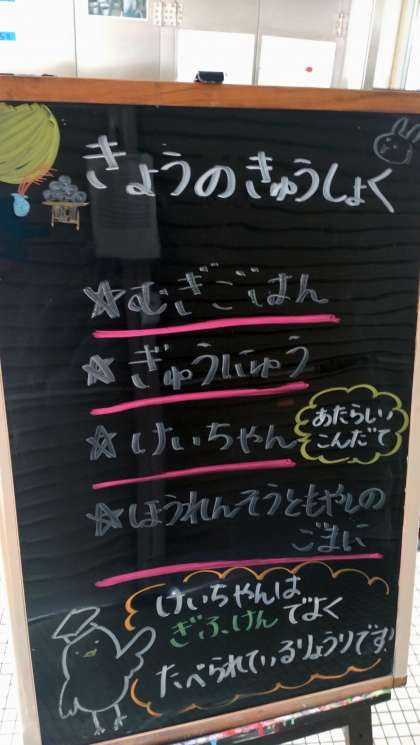 きょうのきゅうしょく
☆むぎごはん
☆ぎゅうにゅう
☆けいちゃん
あたらしい
こんだて
☆ほうれんそうともやしの
ごまに
けいちゃんは
ぎふけんでよく
たべられているりょうりです!